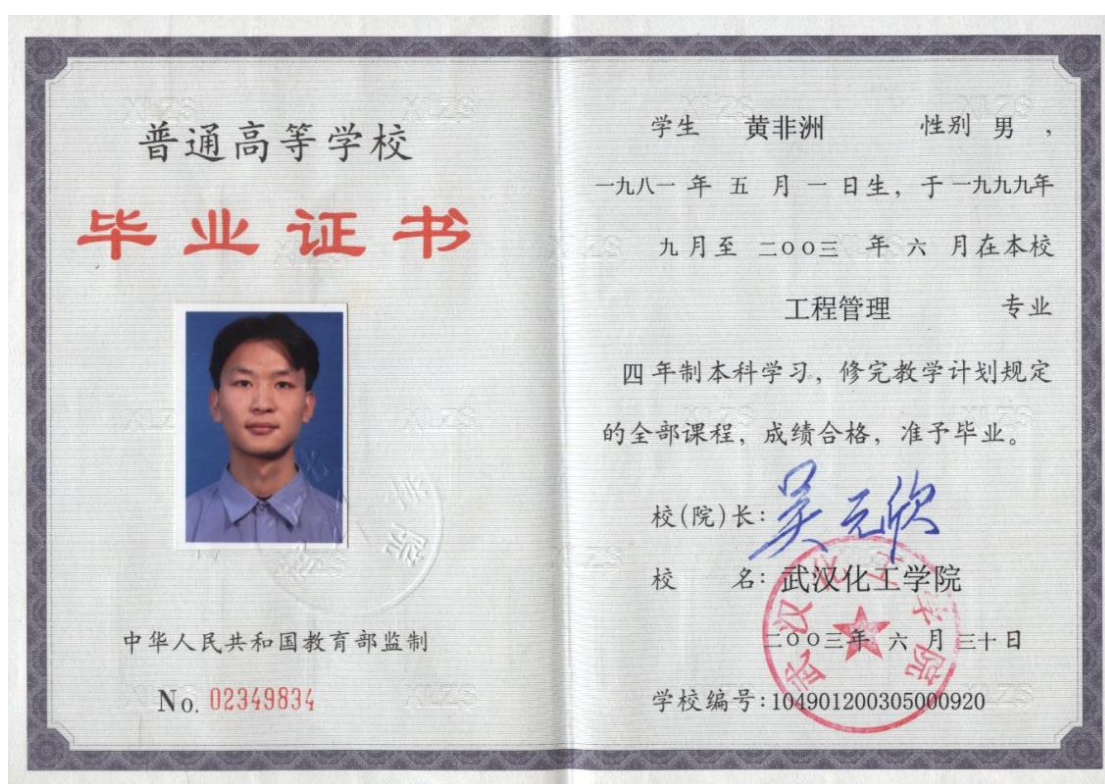 普通高等学校
毕业证书
中华人民共和国教育部监制
No. 02349834
学生 黄非洲 性别 男 ,
一九八一 年 五 月 一 日生, 于 一九九九年
九 月至 二〇〇三 年 六 月在本校
工程管理 专业
四 年制本科学习, 修完教学计划规定
的全部课程, 成绩合格, 准予毕业。
校(院)长: 吴元欣
校 名: 武汉化工学院
武汉化工学院
二〇〇三年 六 月 三十 日
学校编号:104901200305000920
XLZS